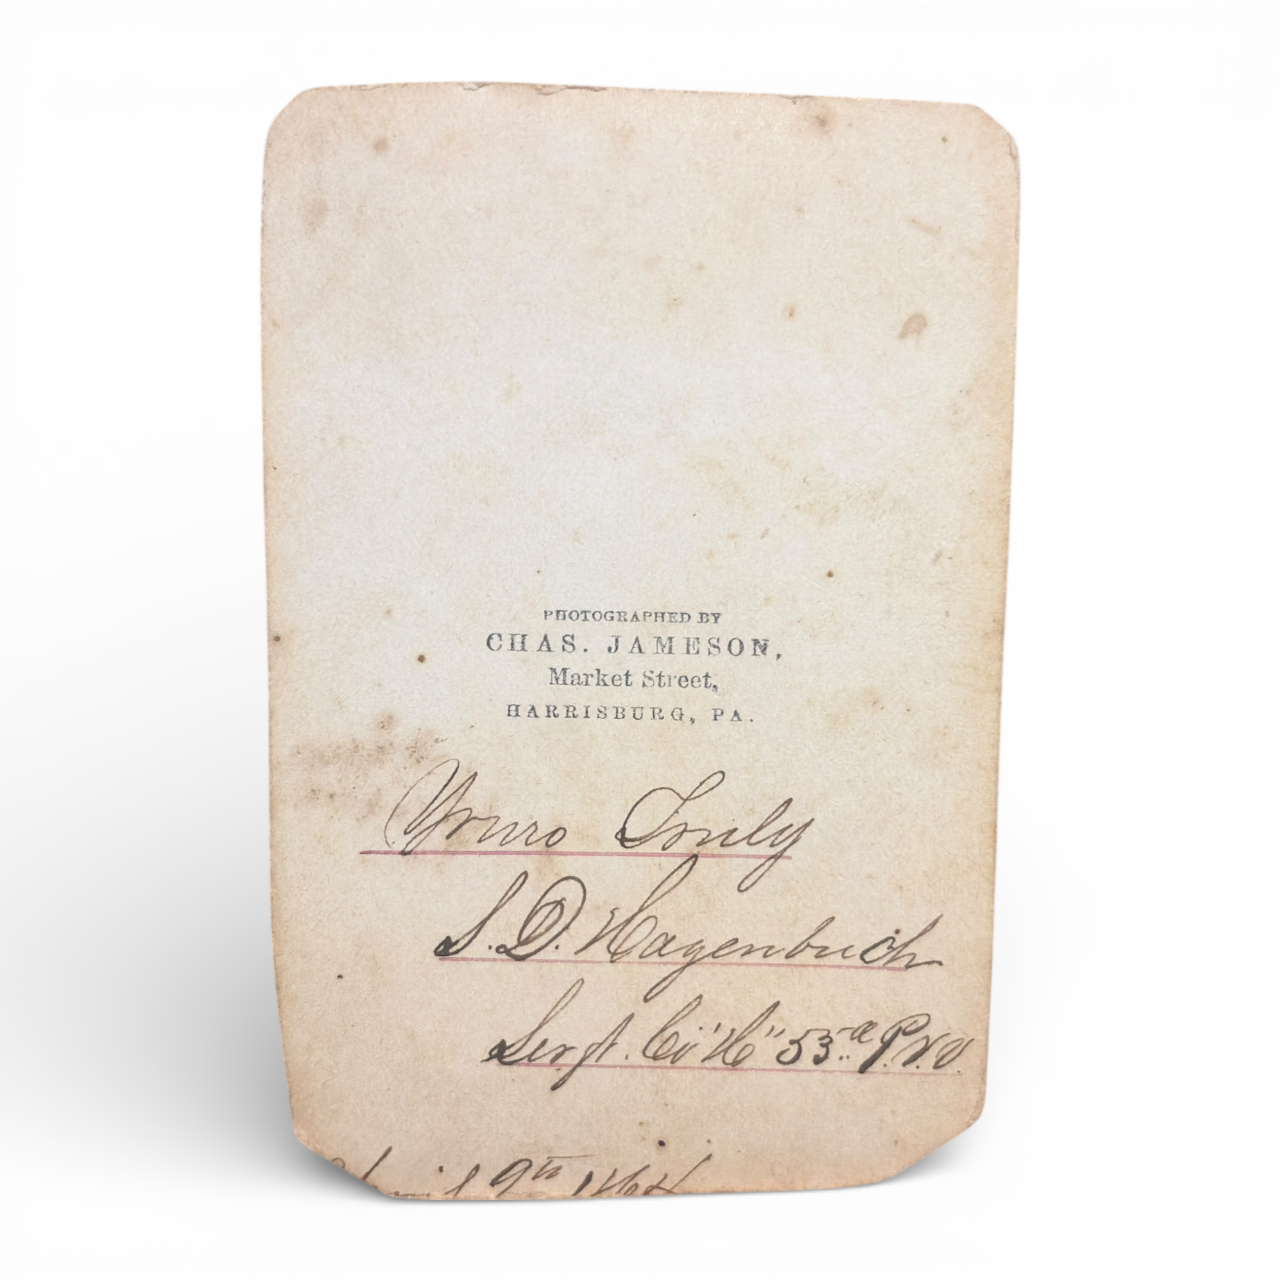 PHOTOGRAPHED BY
CHAS. JAMESON,
Market Street,
HARRISBURG, PA.
Yours Truly
S. D. Hagenbuch
Sergt. Co "H" 53.d P.V.V.
April 9th 1864